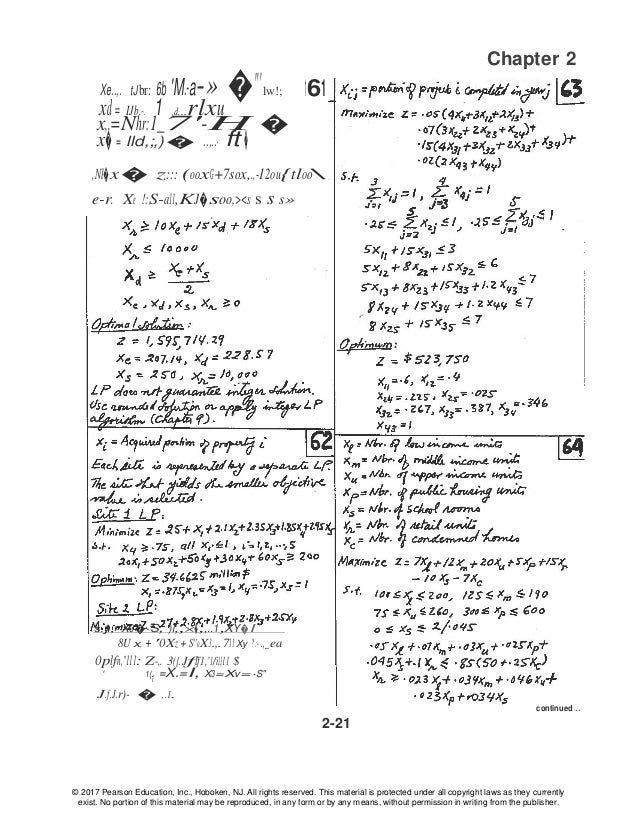 Chapter 2
61
Xr ≥ 10Xe + 15Xd + 18Xs
Xr ≤ 10000
Xd ≥ (Xe + Xs)/2
Xe, Xd, Xs, Xr ≥ 0
Optimal solution:
Z = 1,595,714.29
Xe = 207.14, Xd = 228.57
Xs = 250, Xr = 10,000
LP does not guarantee integer solution.
Use rounded solution or apply integer LP
algorithm (Chapter 9).
62
Xi = Acquired portion of property i
Each site is represented by a separate LP.
The site that yields the smaller objective
value is selected.
Site 1 LP:
Minimize Z = 25 + X1 + 2.1X2 + 2.35X3 + 1.85X4 + 2.95X5
s.t. X4 ≥ .75, all Xi ≤ 1, i = 1,2,…,5
20X1 + 50X2 + 50X3 + 30X4 + 60X5 ≥ 200
Optimum: Z = 34.6625 million $
X1 = .875, X2 = X3 = 1, X4 = .75, X5 = 1
Site 2 LP:
Minimize Z = 27 + 2.8X1 + 1.9X2 + 2.8X3 + 2.5X4
63
Xij = portion of project i completed in year j
Maximize Z = .05(4X11 + 3X12 + 2X13) +
.07(3X22 + 2X23 + X24) +
.15(4X31 + 3X32 + 2X33 + X34) +
.02(2X43 + X44)
s.t.
∑(j=1 to 3) X1j = 1, ∑(j=3 to 4) X4j = 1
.25 ≤ ∑(j=2 to 5) X2j ≤ 1, .25 ≤ ∑(j=1 to 5) X3j ≤ 1
5X11 + 15X31 ≤ 3
5X12 + 8X22 + 15X32 ≤ 6
5X13 + 8X23 + 15X33 + 1.2X43 ≤ 7
8X24 + 15X34 + 1.2X44 ≤ 7
8X25 + 15X35 ≤ 7
Optimum:
Z = $523,750
X11 = .6, X12 = .4
X24 = .225, X25 = .025
X32 = .267, X33 = .387, X34 = .346
X43 = 1
64
Xl = Nbr. of low income units
Xm = Nbr. of middle income units
Xu = Nbr. of upper income units
Xp = Nbr. of public housing units
Xs = Nbr. of school rooms
Xr = Nbr. of retail units
Xc = Nbr. of condemned homes
Maximize Z = 7Xl + 12Xm + 20Xu + 5Xp + 15Xr
− 10Xs − 7Xc
s.t. 100 ≤ Xl ≤ 200, 125 ≤ Xm ≤ 190
75 ≤ Xu ≤ 260, 300 ≤ Xp ≤ 600
0 ≤ Xs ≤ 2/.045
.05Xl + .07Xm + .03Xu + .025Xp +
.045Xs + .1Xr ≤ .85(50 + .25Xc)
Xr ≥ .023Xl + .034Xm + .046Xu +
.023Xp + .034Xs
continued...
2-21
© 2017 Pearson Education, Inc., Hoboken, NJ. All rights reserved. This material is protected under all copyright laws as they currently
exist. No portion of this material may be reproduced, in any form or by any means, without permission in writing from the publisher.